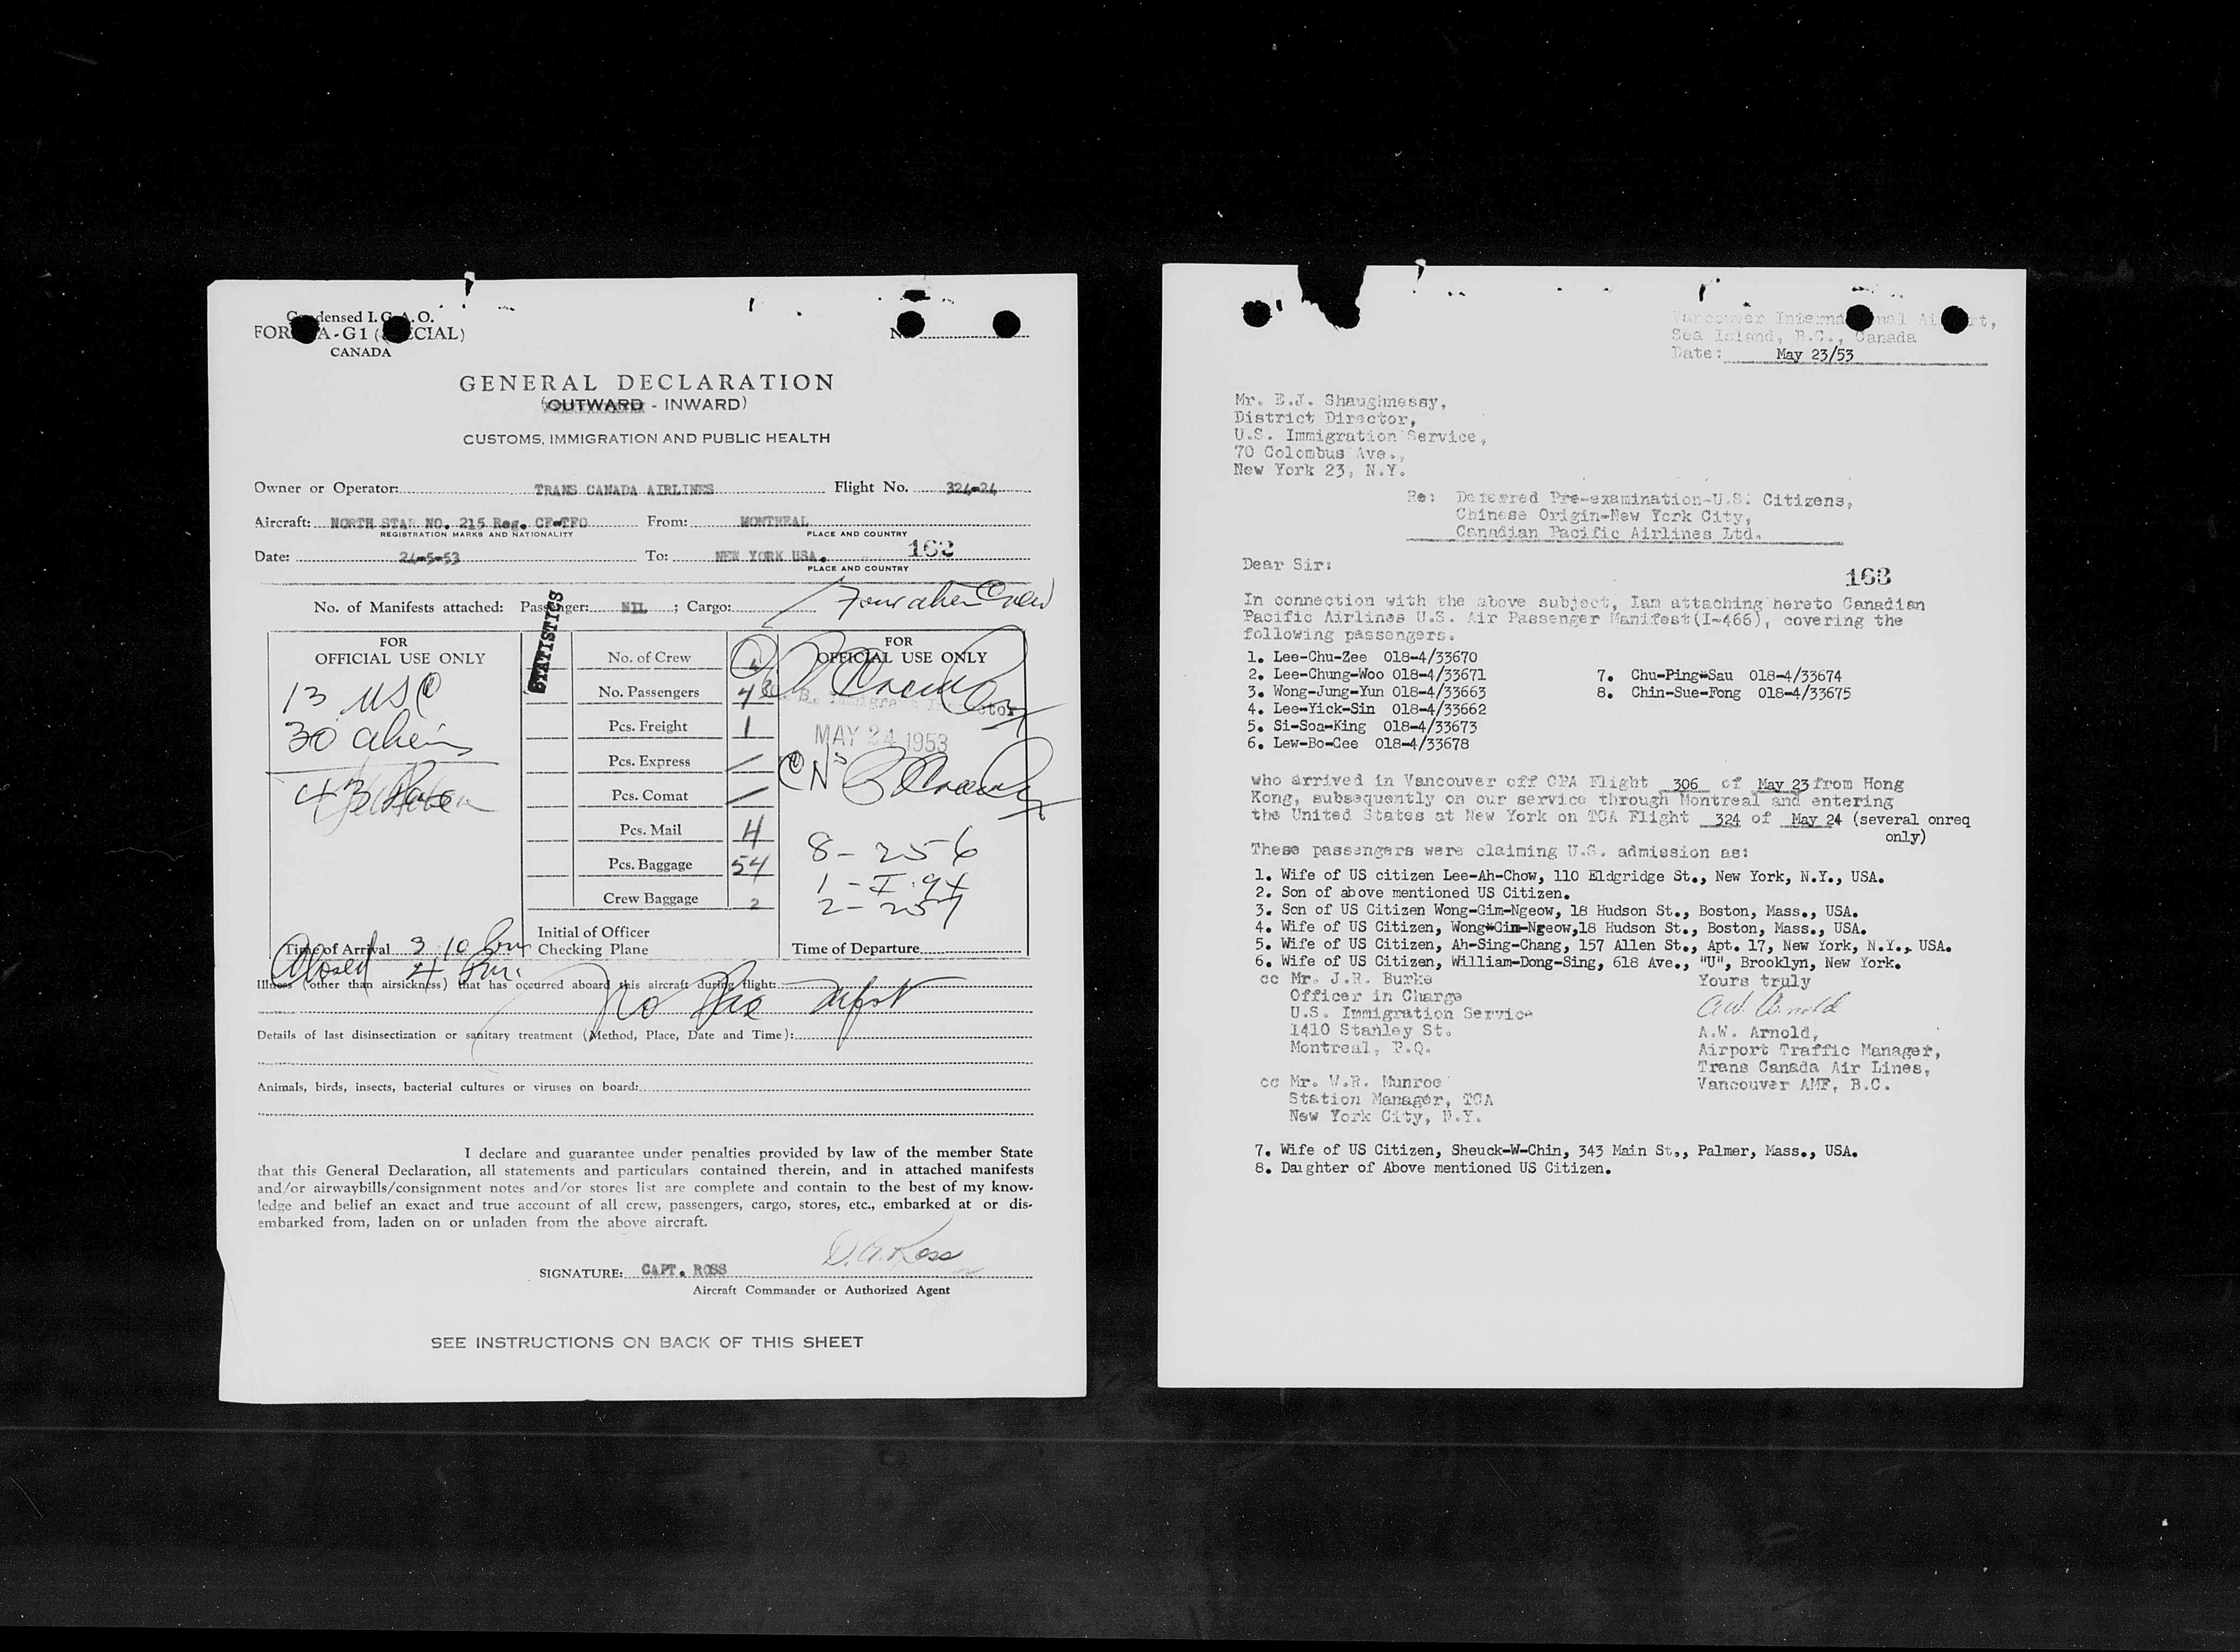 Condensed I.C.A.O.
FORM A-G1 (SPECIAL)
CANADA
No.
GENERAL DECLARATION
(OUTWARD - INWARD)
CUSTOMS, IMMIGRATION AND PUBLIC HEALTH
Owner or Operator: TRANS CANADA AIRLINES Flight No. 324-24
Aircraft: NORTH STAR NO. 215 Reg. CF-TFO From: MONTREAL
REGISTRATION MARKS AND NATIONALITY PLACE AND COUNTRY
162
Date: 24-5-53 To: NEW YORK USA.
PLACE AND COUNTRY
No. of Manifests attached: Passenger: NIL ; Cargo: Four alien Crew
STATISTICS
FOR
OFFICIAL USE ONLY
13 USC
30 aliens
43
No. of Crew
No. Passengers 43
Pcs. Freight 1
Pcs. Express
Pcs. Comat
Pcs. Mail 4
Pcs. Baggage 54
Crew Baggage 2
FOR
OFFICIAL USE ONLY
MAY 24 1953
8 - 256
1 - I.94
2 - 257
Time of Arrival 3 10 pm
Closed 4 pm.
Initial of Officer
Checking Plane
Time of Departure
Illness (other than airsickness) that has occurred aboard this aircraft during flight:
No
Details of last disinsectization or sanitary treatment (Method, Place, Date and Time):
Animals, birds, insects, bacterial cultures or viruses on board:
I declare and guarantee under penalties provided by law of the member State
that this General Declaration, all statements and particulars contained therein, and in attached manifests
and/or airwaybills/consignment notes and/or stores list are complete and contain to the best of my know-
ledge and belief an exact and true account of all crew, passengers, cargo, stores, etc., embarked at or dis-
embarked from, laden on or unladen from the above aircraft.
D.A. Ross
SIGNATURE: CAPT. ROSS
Aircraft Commander or Authorized Agent
SEE INSTRUCTIONS ON BACK OF THIS SHEET
Vancouver International Airport,
Sea Island, B.C., Canada
Date: May 23/53
Mr. E.J. Shaughnessy,
District Director,
U.S. Immigration Service,
70 Colombus Ave.,
New York 23, N.Y.
Re: Deferred Pre-examination-U.S. Citizens,
Chinese Origin-New York City,
Canadian Pacific Airlines Ltd.
Dear Sir:
163
In connection with the above subject, Iam attaching hereto Canadian
Pacific Airlines U.S. Air Passenger Manifest(I-466), covering the
following passengers.
1. Lee-Chu-Zee 018-4/33670
2. Lee-Chung-Woo 018-4/33671 7. Chu-Ping*Sau 018-4/33674
3. Wong-Jung-Yun 018-4/33663 8. Chin-Sue-Fong 018-4/33675
4. Lee-Yick-Sin 018-4/33662
5. Si-Soa-King 018-4/33673
6. Lew-Bo-Gee 018-4/33678
who arrived in Vancouver off CPA Flight 306 of May 23 from Hong
Kong, subsequently on our service through Montreal and entering
the United States at New York on TCA Flight 324 of May 24 (several onreq
only)
These passengers were claiming U.S. admission as:
1. Wife of US citizen Lee-Ah-Chow, 110 Eldgridge St., New York, N.Y., USA.
2. Son of above mentioned US Citizen.
3. Son of US Citizen Wong-Gim-Ngeow, 18 Hudson St., Boston, Mass., USA.
4. Wife of US Citizen, Wong*Gim-Ngeow,18 Hudson St., Boston, Mass., USA.
5. Wife of US Citizen, Ah-Sing-Chang, 157 Allen St., Apt. 17, New York, N.Y., USA.
6. Wife of US Citizen, William-Dong-Sing, 618 Ave., "U", Brooklyn, New York.
cc Mr. J.R. Burke
Officer in Charge
U.S. Immigration Service
1410 Stanley St.
Montreal, P.Q.
Yours truly
A.W. Arnold
A.W. Arnold,
Airport Traffic Manager,
Trans Canada Air Lines,
Vancouver AMF, B.C.
cc Mr. W.R. Munroe
Station Manager, TCA
New York City, N.Y.
7. Wife of US Citizen, Sheuck-W-Chin, 343 Main St., Palmer, Mass., USA.
8. Daughter of Above mentioned US Citizen.